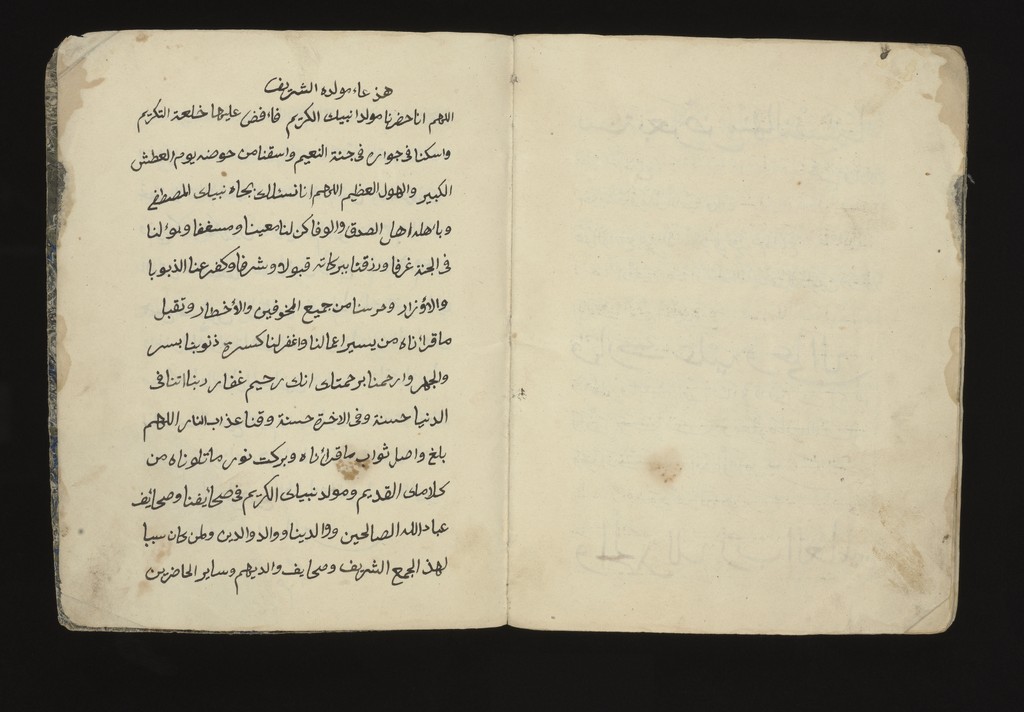 هذ عاء مولده الشريف
اللهم انا حضرنا مولدا نبيك الكريم فافض عليها خلعة التكريم
واسكنا فى جواره فى جنة النعيم واسقنا من حوضه يوم العطش
الكبير والهول العظيم اللهم انا نسئلك بجاه نبيك المصطفى
وباهله اهل الصدق والوفا كن لنا معينا ومسعفا وبوئلنا
فى الجنة غرفا ورزقنا ببركاته قبولا وشرفا وكفر عنا الذبوبا
والاؤزار وحرسنا من جميع المخوفين والأخطار وتقبل
ماقرأناه من يسير اعمالنا واغفر لنا كسرة ذنوبنا بسر
والجهر وارحمنا برحمتك انك رحيم غفار ربنا اتنا فى
الدنيا حسنة وفى الاخرة حسنة وقنا عذاب النار اللهم
بلغ واصل ثواب ماقرأناه وبركت نور ماتلوناه من
كلامك القديم ومولد نبيك الكريم فى صحايفنا وصحايف
عباد الله الصالحين ووالدينا ووالد والدين ولمن كان سببا
لهذ الجمع الشريف وصحايف والديهم وساير الحاضرين